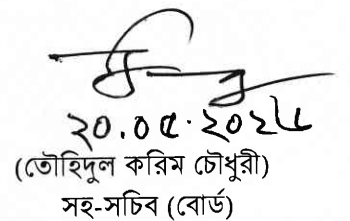 ২০.০৫.২০২৫
(তৌহিদুল করিম চৌধুরী)
সহ-সচিব (বোর্ড)